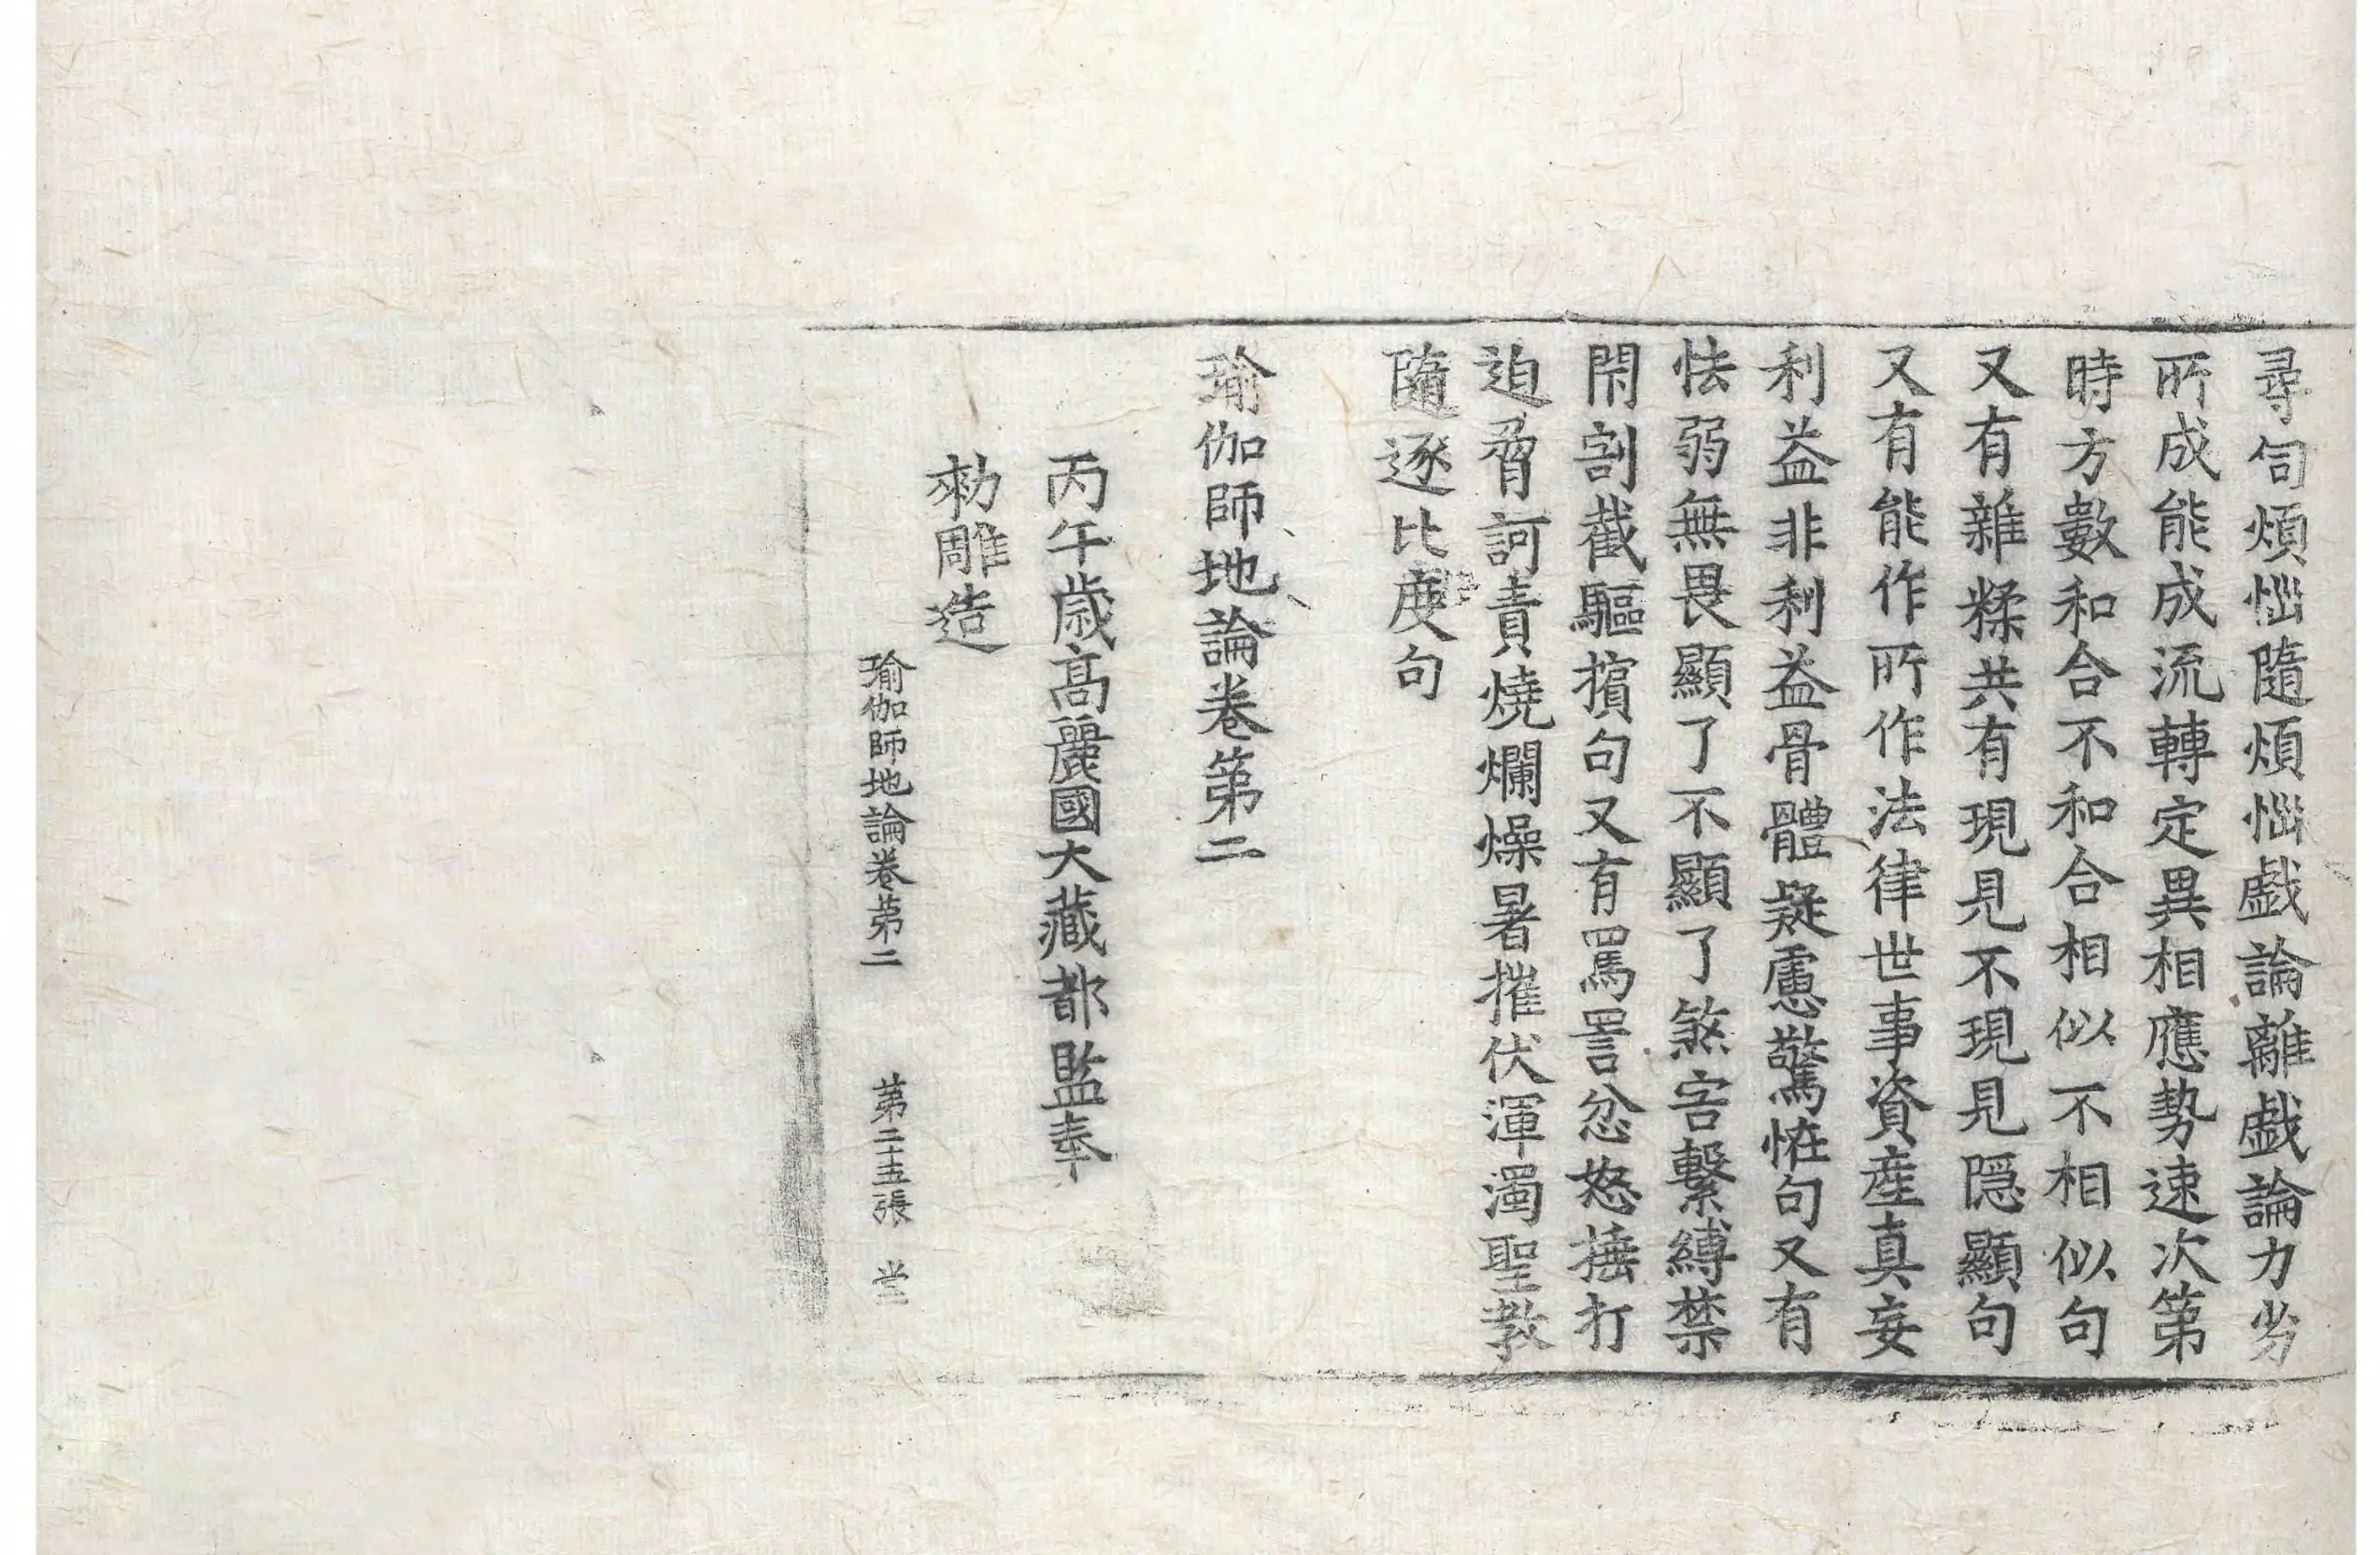 尋伺煩惱隨煩惱戯論離戯論力劣
所成能成流轉定異相應勢速次第
時方數和合不和合相似不相似句
又有雜糅共有現見不現見隠顯句
又有能作所作法律世事資産真妄
利益非利益骨體疑慮驚恠句又有
怯弱無畏顯了不顯了煞害繫縛禁
閇割截驅擯句又有罵詈忿怒捶打
迫脅訶責燒爛燥暑摧伏渾濁聖教
隨逐比度句
瑜伽師地論卷第二
丙午歳髙麗國大藏都監奉
勑雕造
瑜伽師地論卷第二 第二十五張